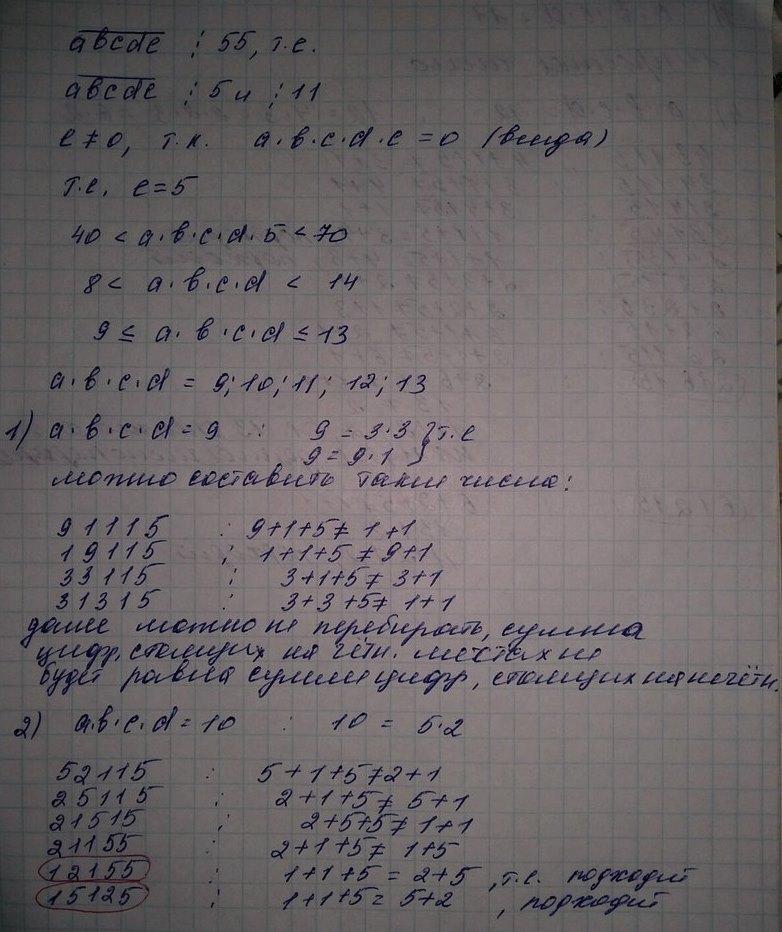 abcde ⋮ 55, т.е.
abcde ⋮ 5 и ⋮ 11
e ≠ 0, т.к. a·b·c·d·e = 0 (всегда)
т.е. e = 5
40 < a·b·c·d·5 < 70
8 < a·b·c·d < 14
9 ≤ a·b·c·d ≤ 13
a·b·c·d = 9; 10; 11; 12; 13
1) a·b·c·d = 9 : 9 = 3·3 } т.е
9 = 9·1 }
можно составить такие числа:
91115 : 9+1+5 ≠ 1+1
19115 ; 1+1+5 ≠ 9+1
33115 ; 3+1+5 ≠ 3+1
31315 ; 3+3+5 ≠ 1+1
далее можно не перебирать, сумма
цифр, стоящих на чётн. местах не
будет равна сумме цифр, стоящих на нечётн.
2) a.b·c.d = 10 : 10 = 5·2
52115 : 5+1+5 ≠ 2+1
25115 ; 2+1+5 ≠ 5+1
21515 ; 2+5+5 ≠ 1+1
21155 ; 2+1+5 ≠ 1+5
12155 ; 1+1+5 = 2+5, т.е. подходит
15125 ; 1+1+5 = 5+2, подходит